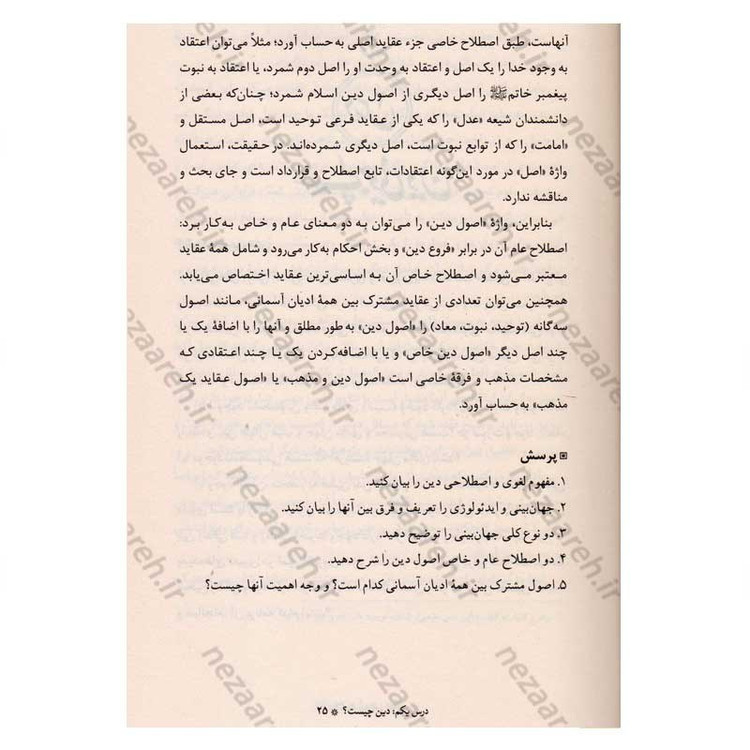 آنهاست، طبق اصطلاح خاصی جزء عقاید اصلی به حساب آورد؛ مثلاً می‌توان اعتقاد
به وجود خدا را یک اصل و اعتقاد به وحدت او را اصل دوم شمرد، یا اعتقاد به نبوت
پیغمبر خاتمﷺ را اصل دیگری از اصول دین اسلام شمرد؛ چنان‌که بعضی از
دانشمندان شیعه «عدل» را که یکی از عقاید فرعی توحید است، اصل مستقل و
«امامت» را که از توابع نبوت است، اصل دیگری شمرده‌اند. در حقیقت، استعمال
واژۀ «اصل» در مورد این‌گونه اعتقادات، تابع اصطلاح و قرارداد است و جای بحث و
مناقشه ندارد.
بنابراین، واژۀ «اصول دین» را می‌توان به دو معنای عام و خاص به‌کار برد:
اصطلاح عام آن در برابر «فروع دین» و بخش احکام به‌کار می‌رود و شامل همۀ عقاید
معتبر می‌شود و اصطلاح خاص آن به اساسی‌ترین عقاید اختصاص می‌یابد.
همچنین می‌توان تعدادی از عقاید مشترک بین همۀ ادیان آسمانی، مانند اصول
سه‌گانه (توحید، نبوت، معاد) را «اصول دین» به طور مطلق و آنها را با اضافۀ یک یا
چند اصل دیگر «اصول دین خاص» و یا با اضافه‌کردن یک یا چند اعتقادی که
مشخصات مذهب و فرقۀ خاصی است «اصول دین و مذهب» یا «اصول عقاید یک
مذهب» به حساب آورد.
پرسش
۱. مفهوم لغوی و اصطلاحی دین را بیان کنید.
۲. جهان‌بینی و ایدئولوژی را تعریف و فرق بین آنها را بیان کنید.
۳. دو نوع کلی جهان‌بینی را توضیح دهید.
۴. دو اصطلاح عام و خاص اصول دین را شرح دهید.
۵. اصول مشترک بین همۀ ادیان آسمانی کدام است؟ و وجه اهمیت آنها چیست؟
درس یکم: دین چیست؟ * ۲۵
nezaareh.ir